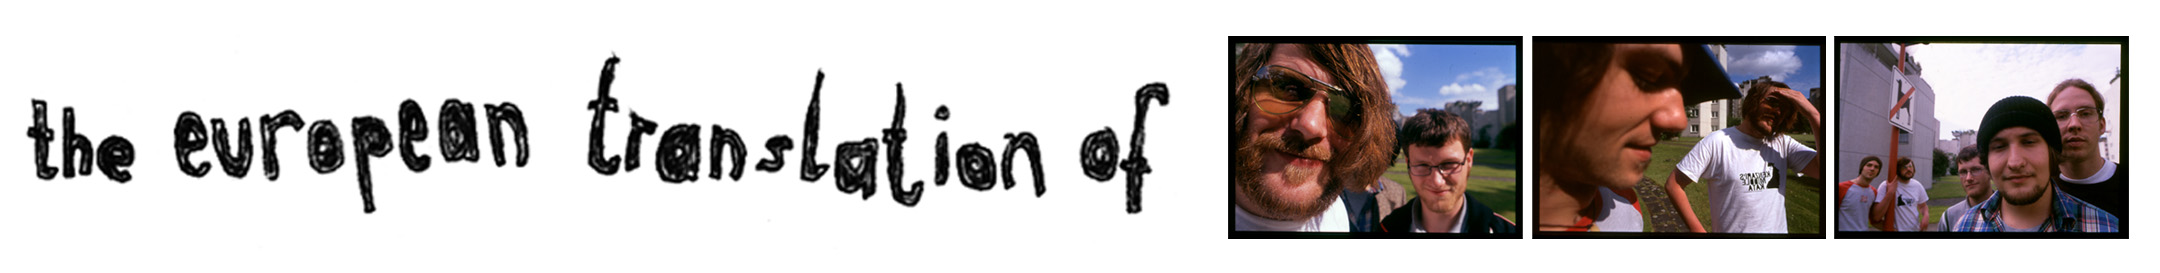 the european translation of